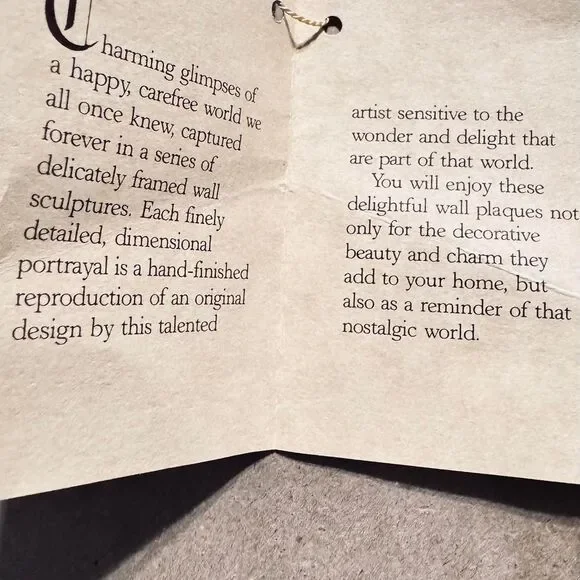 Charming glimpses of
a happy, carefree world we
all once knew, captured
forever in a series of
delicately framed wall
sculptures. Each finely
detailed, dimensional
portrayal is a hand-finished
reproduction of an original
design by this talented
artist sensitive to the
wonder and delight that
are part of that world.
You will enjoy these
delightful wall plaques not
only for the decorative
beauty and charm they
add to your home, but
also as a reminder of that
nostalgic world.